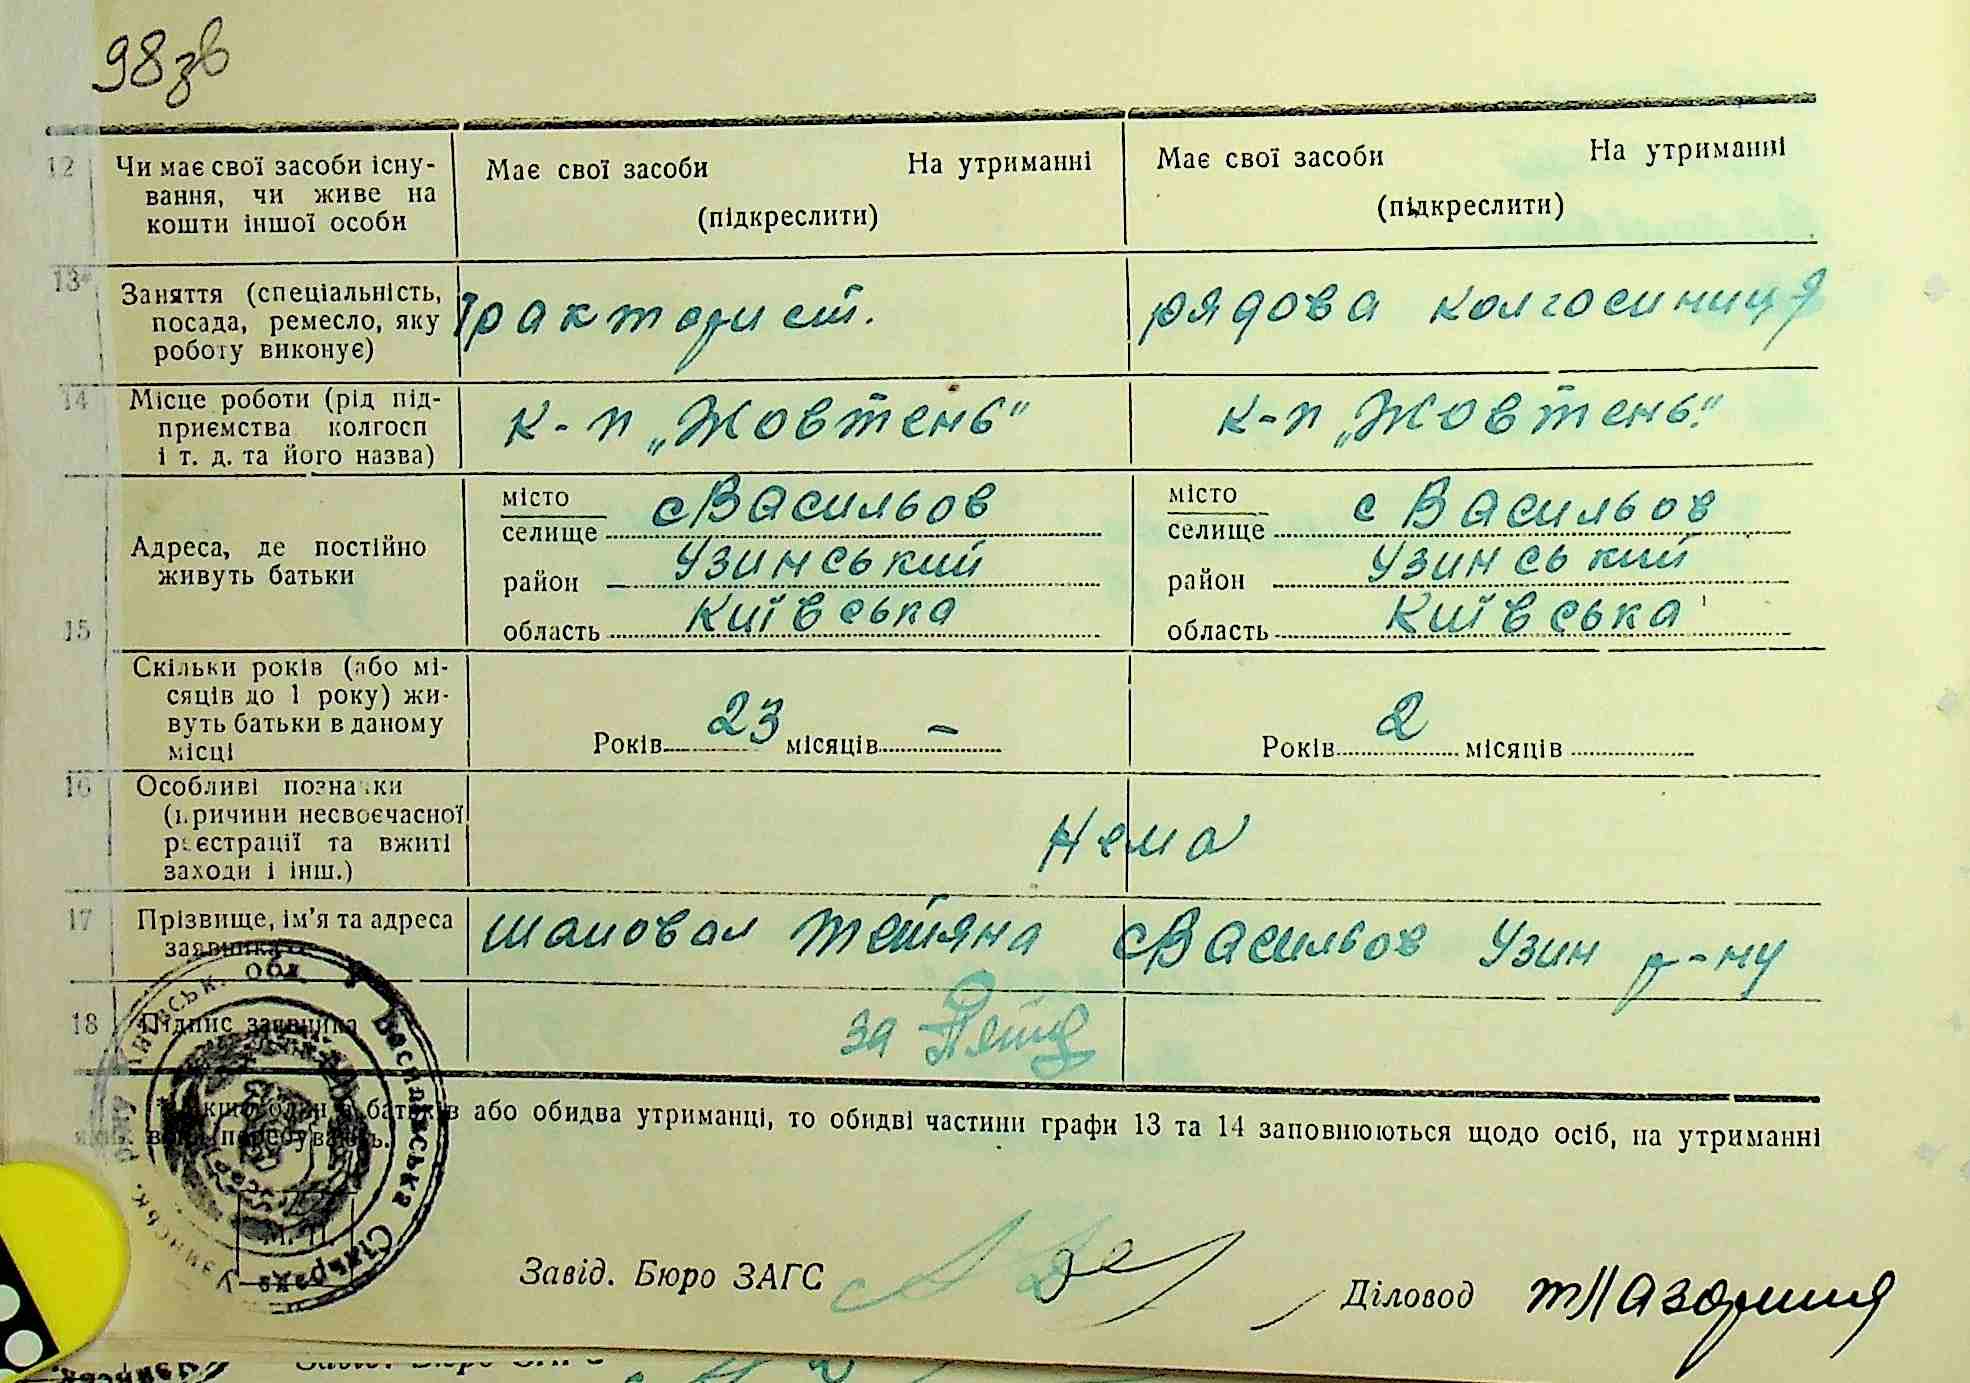 98зв
12 Чи має свої засоби існу-
вання, чи живе на
кошти іншої особи
Має свої засоби На утриманні
(підкреслити)
Має свої засоби На утриманні
(підкреслити)
13* Заняття (спеціальність,
посада, ремесло, яку
роботу виконує)
Тракторист.
рядова колгоспниця
14 Місце роботи (рід під-
приємства колгосп
і т. д. та його назва)
к-п „Жовтень“
к-п „Жовтень“.
15 Адреса, де постійно
живуть батьки
місто
селище с Васильов
район Узинський
область Київська
місто
селище с Васильов
район Узинський
область Київська
Скільки років (або мі-
сяців до 1 року) жи-
вуть батьки в даному
місці
Років 23 місяців –
Років 2 місяців
16 Особливі познаки
(причини несвоєчасної
реєстрації та вжиті
заходи і інш.)
Нема
17 Прізвище, ім'я та адреса
заявника
Шаповал Тетяна с Васильов Узин р-ну
18 Підпис заявника
за
або обидва утриманці, то обидві частини графи 13 та 14 заповнюються щодо осіб, на утриманні
перебувають.
М. П.
Сільрада
Завід. Бюро ЗАГС
Діловод